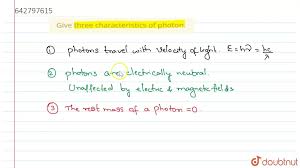 642797615
Give three characteristics of photon.
① photons travel with velocity of light. E=hν=hc/λ
② photons are electrically neutral.
Unaffected by electric & magnetic fields
③ The rest mass of a photon =0.
doubtnut